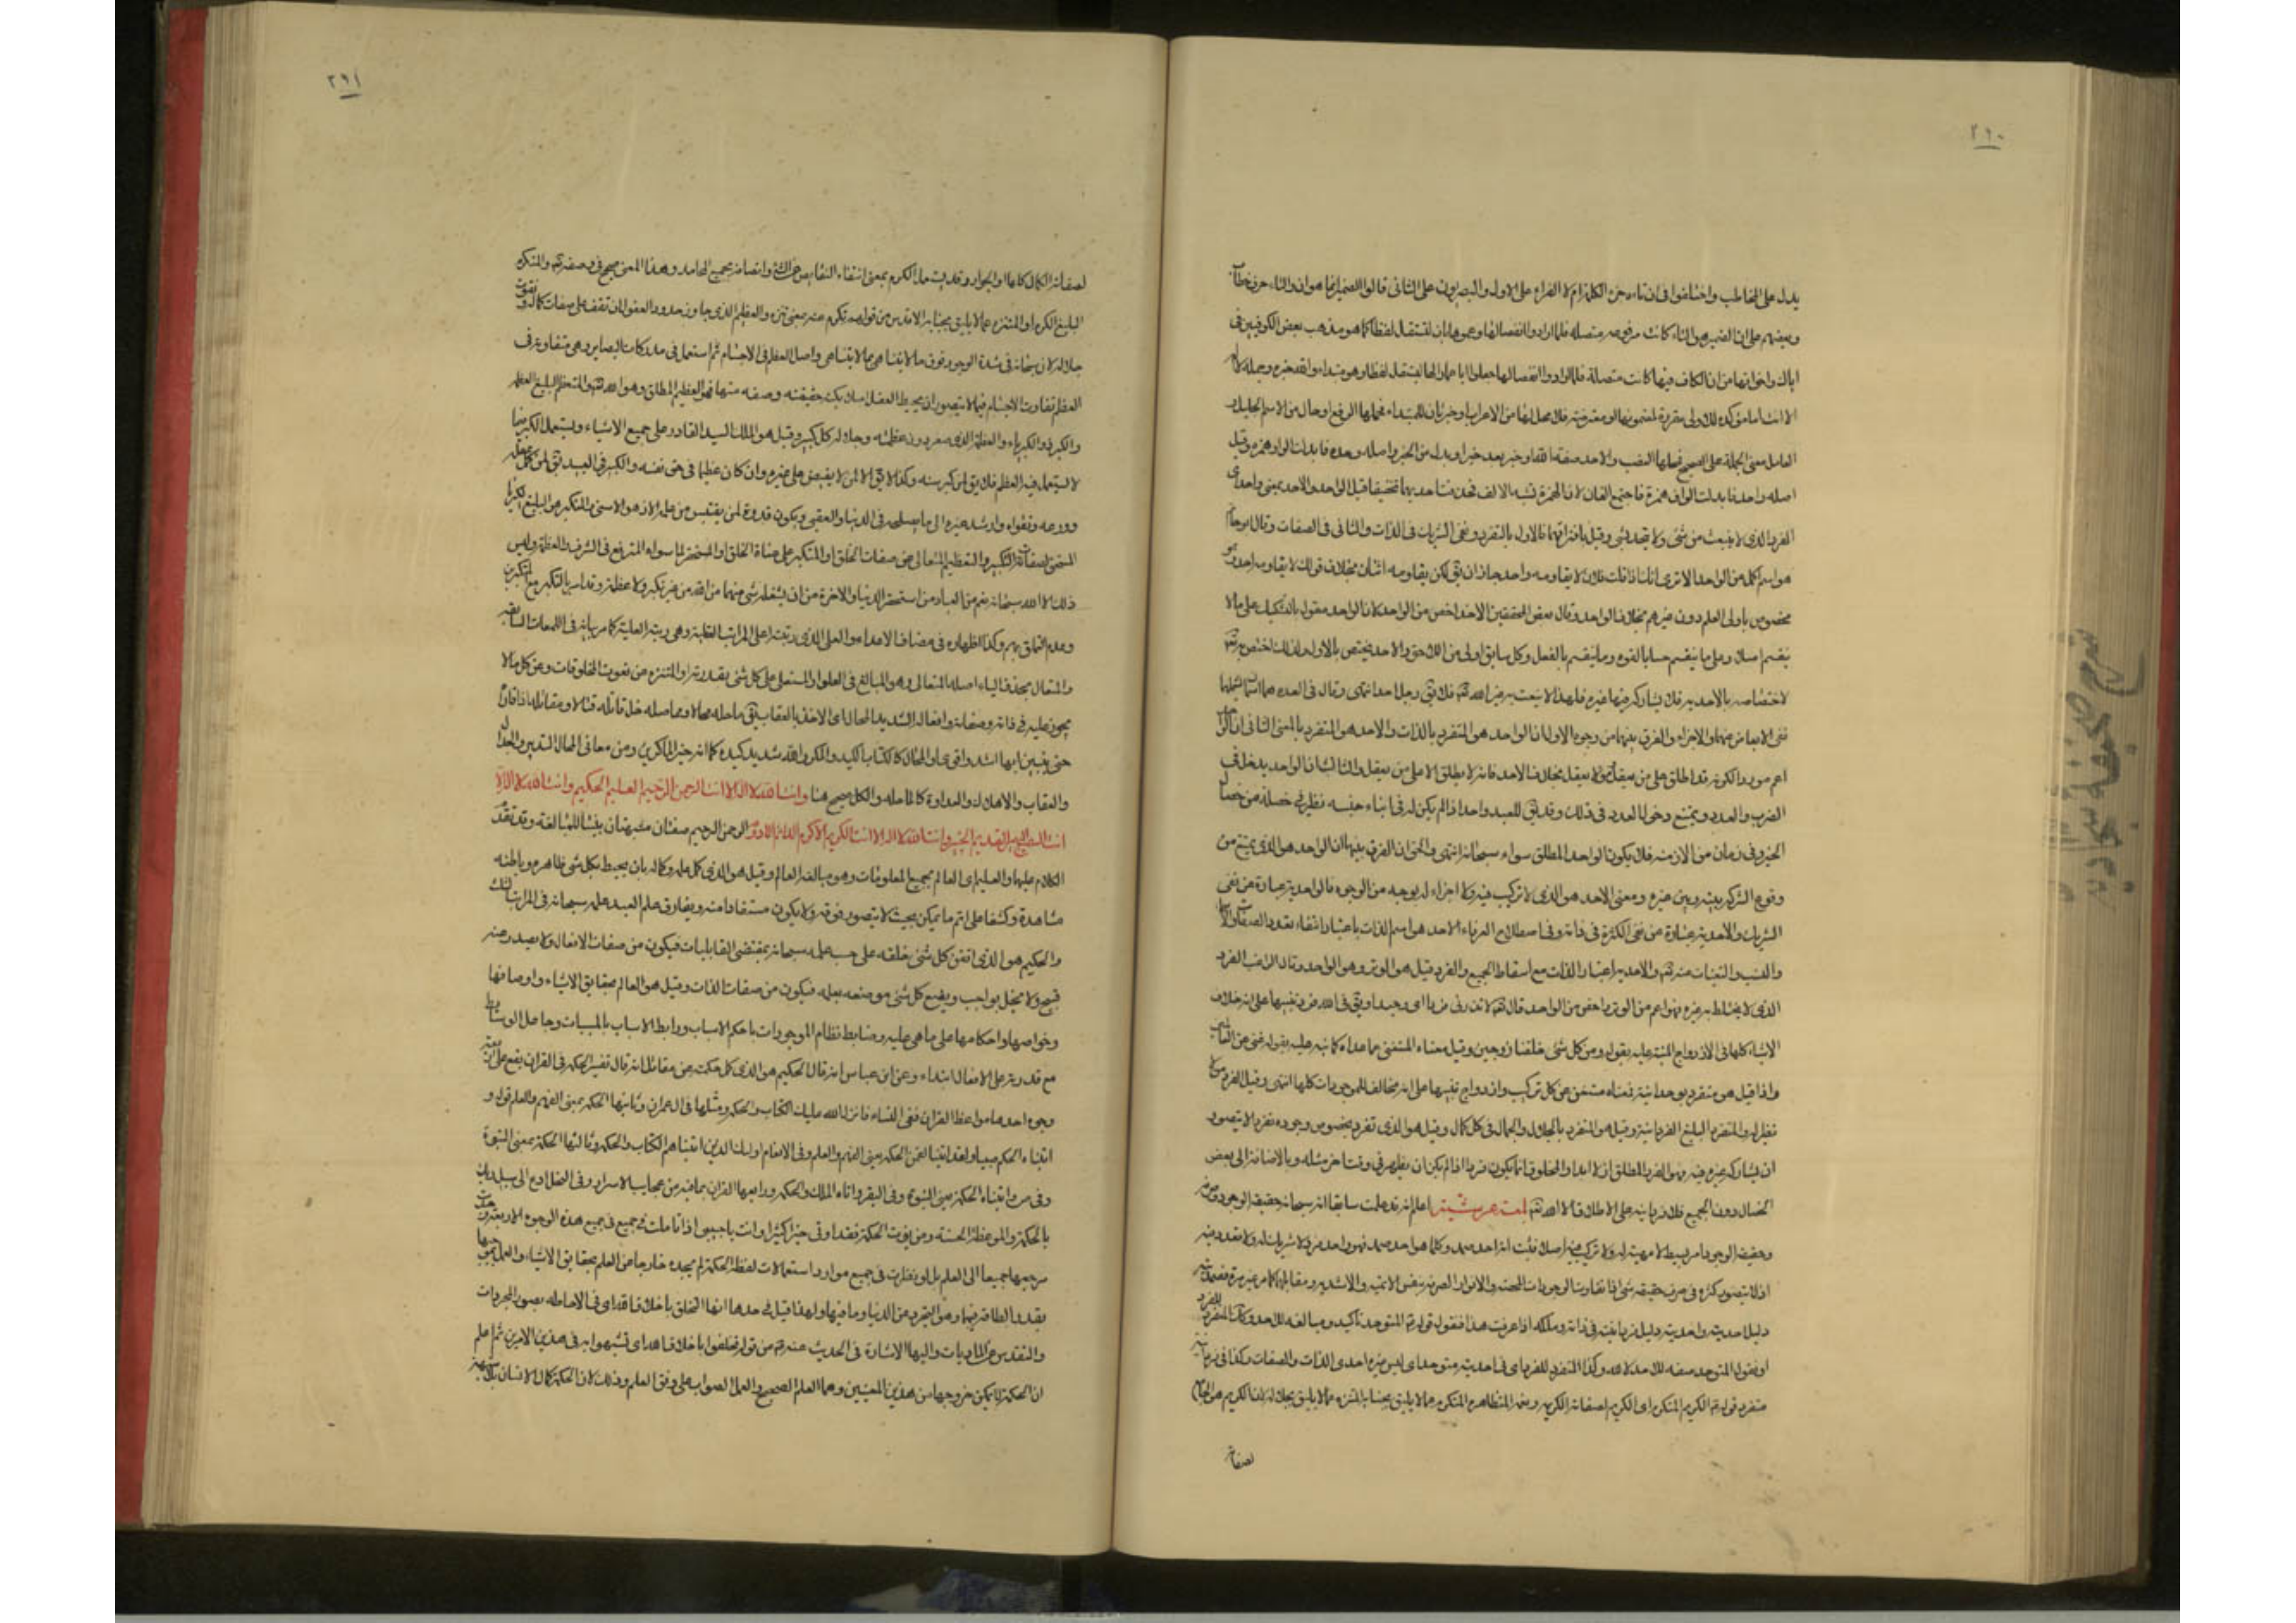 ٢٩٠
يدل على المخاطب واختلفوا في ان تاءه من الكلمة ام لا الفراء على الاول والبصريون على الثاني قالوا الضمير انما هو ان والتاء حرف خطاب
وبعضهم على ان الضمير هو التاء كانت مرفوعه متصله فلما ارادوا انفصالها دعموها بان لتستقل لفظا كما هو مذهب بعض الكوفيين في
اياك واخواتها من ان الكاف فيها كانت متصلة فلما ارادوا انفصالها جعلوا ايا عمادا لها ليستقل لفظا وهو مبتدا والله خبره وجملة لا اله
الا انت اما مؤكدة لك ولى مقررة لمضمونها او معترضة فلا محل لها من الاعراب او خبر ثان للمبتداء فمحلها الرفع او حال من الاسم الجليل و
العامل معنى الجملة على الصحيح فمحلها النصب والاحد صفة الله او خبر بعد خبر او بدل من الخبر واصله وحد فابدلت الواو همزه وقيل
اصله واحد فابدلت الواو همزة فاجتمع الفان لان الهمزة تشبه بالالف فحذفت احديهما تخفيفا قيل الواحد والاحد بمعنى واحد اى
الفرد الذى لا ينبعث من شئ ولا يتحد بشئ وقيل بافتراقهما فالاول بالتفرد ونفى الشريك في الذات والثاني في الصفات وقال ابو حاتم
هو اسم اكمل من الواحد الا ترى انك اذا قلت فلان لا يقاومه واحد جاز ان يق لكن يقاومه اثنان بخلاف قولك لا يقاومه احد وهو
مخصوص باولى العلم دون غيرهم بخلاف الواحد وقال بعض المحققين الاحد اخص من الواحد لان الواحد مقول بالتشكيك على ما لا
ينقسم اصلا وعلى ما ينقسم حسا بالقوه وما ينقسم بالفعل وكل سابق اولى من اللاحق والاحد يختص بالاول
لاختصاصه بالاحديه فلا يشاركه فيها غيره فلهذا لا ينعت به غير الله تع فلا يق رجل احد انتهى وقال في العده هما اسمان يشملهما
نفى الابعاض عنهما والاجزاء والفرق بينهما من وجوه الاول ان الواحد هو المتفرد بالذات والاحد هو المتفرد بالمعنى الثانى ان الواحد
اعم موردا لكونه قد اطلق على من يعقل وما لا يعقل بخلاف الاحد فانه لا يطلق الا على من يعقل والثالث ان الواحد يدخل فى
الضرب والعدد ويمتنع دخول العدد في ذلك وقد يق للعبد واحد اذا لم يكن له في ابناء جنسه نظير في خصلة من خصال
الخير وفى زمان من الازمنه فلا يكون الواحد المطلق سواه سبحانه انتهى والحق ان الفرق بينهما ان الواحد هو الذى يمتنع من
وقوع الشركه بينه وبين غيره ومعنى الاحد هو الذى لا تركيب فيه ولا اجزاء له بوجه من الوجوه فالواحديه عبارة عن نفى
الشريك والاحديه عبارة عن نفى الكثرة فى ذاته وفى اصطلاح العرفاء الاحد هو اسم الذات باعتبار انتفاء تعدد الصفات والاسماء
والنسب والتعينات عنه تع والاحديه اعتبار الذات مع اسقاط الجميع والفرد قيل هو الوتر وهو الواحد وقال الراغب الفرد
الذى لا يختلط به غيره فهو اعم من الوتر واخص من الواحد قال تع لا تذرنى فردا اى وحيدا ويق فى الله فرد تنبيها على انه خلاف
الاشياء كلها في الازدواج المنبه عليه بقوله ومن كل شئ خلقنا زوجين وقيل معناه المستغنى عما عداه كما نبه عليه بقوله غنى عن العالمين
واذا قيل هو متفرد بوحدانيته فمعناه مستغن عن كل تركيب وازدواج تنبيها على انه مخالف للموجودات كلها انتهى وقيل الفرد من لا
نظير له والمتفرد البليغ الفردانيه وقيل هو المتفرد بالجلال والجمال فى كل كمال وقيل هو الذى تفرد بخصوص وجوده تفردا لا يتصور
ان يشاركه غيره فيه فهو الفرد المطلق ازلا وابدا والمخلوق انما يكون فردا اذا لم يكن ان يظهر في وقت اخر مثله وبالاضافة الى بعض
الخصال دون الجميع فلا فردانيه على الاطلاق الا لله تع لمعة عرشية اعلم انه قد علمت سابقا انه سبحانه حقيقة الوجود وصرفه
وحقيقة الوجود امر بسيط لا مهية له ولا تركيب فيه اصلا فثبت انه احد صمد وكلما هو احد صمد فهو واحد فرد لا شريك له ولا تعدد فيه
اذ لا يتصور كثره فى صرف حقيقة شئ اذ تفاوت الوجودات المحضه والانوار الصرفه بنفس الاتميه والاشديه ومقابلهما كما مر غير مرة فصمديته
دليل احديته واحديته دليل فردانيته في ذاته وملكه اذا عرفت هذا فنقول قوله تع المتوحد تأكيد ومبالغه للاحد وكذا المتفرد للفرد
او نقول المتوحد صفه للاحد وكذا المتفرد للفرد اى فى احديته متوحد اى ليس غيره احدى الذات والصفات وكذا فى فردانيته
متفرد قوله تع الكريم المتكرم اى الكريم لصفاته الكريمه ونعوته المتظاهره المتكرم عما لا يليق بجنابه المتنزه عما لا يليق بجلاله لان الكريم هو الجامع
لصفاته
٢٩١
لصفات الكمال كلها او الجواد وقد يثبت ما الكرم بمعنى انتفاء النقايص عن ذاته واتصافه بجميع المحامد وهذا المعنى صحيح في وصفه تع والمتكرم
البليغ الكرم او المتنزه عما لا يليق بجنابه الاقدس من قولهم تكرم عنه بمعنى تنزه والعظيم الذى جاوز حدود العقول ان تقف على صفات كماله ونعوت
جلاله لانه سبحانه في شدة الوجود فوق ما لا يتناهى بما لا يتناهى واصل العظم في الاجسام ثم استعمل في مدركات البصاير وهى متفاوته في
العظم تفاوت الاجسام فما لا يتصور ان يحيط العقل اصلا بكنه حقيقته وصفه منها فهو العظيم المطلق وهو الله تع والمتعظم البليغ العظمه
والكبير ذو الكبرياء والعظمة الذى صغر دون عظمته وجلاله كل كبير وقيل هو الملك السيد القادر على جميع الاشياء ويستعمل الكبير فيما
لا يستعمل فيه العظيم فلا يق وان كان عظيما فى حق نفسه والكبير فى العبد يق لمن كمل عقله
وورعه وتقواه وارشد غيره الى ما يصلحه في الدنيا والعقبى ويكون قدوة لمن يقتبس من علمه الازهر الاسنى والمتكبر هو البليغ الكبرياء
المستحق لصفات التكبير والتعظيم المتعالى عن صفات الخلق او المتكبر على عتاة الخلق او المستحقر لما سواه المترفع فى الشرف والعظمة وليس
ذلك الا الله سبحانه نعم من العباد من استحقر الدنيا والاخرة من ان يشغله شئ منهما من الله من غير تكبر ولا عظمة وقد امر بالتكبر مع المتكبرين
وعدم التملق لهم وكذا اظهاره في مصاف الاعداء والعلى الذى رتبته اعلى المراتب العقلية وهى رتبة العلية كما مر بيانه فى اللمعات السابقه
والمتعال بحذف الياء اصله المتعالى وهو المبالغ فى العلو او المستعلى على كل شئ بقدرته او المتنزه من نعوت المخلوقات وعن كل ما لا
يجوز عليه في ذاته وصفاته وافعاله الشديد المحال اى الاخذ بالعقاب يق ماحله محالا ومماحله مثل قاتله قتالا ومقاتله اذا قاواه
حتى يتبين ايهما اشد واقوى او المحال كالكتاب الكيد والمكر والله شديد كيده كما انه خير الماكرين ومن معانى المحال التدبير والجدال
والعقاب والاهلاك والعداوة كالماحله والكل صحيح هنا وانت الله لا اله الا انت الرحمن الرحيم العليم الحكيم وانت الله لا اله الا
انت السميع البصير القديم الخبير وانت الله لا اله الا انت الكريم الاكرم الدائم الادوم الرحمن الرحيم صفتان مشبهتان بنيتا للمبالغه وقد تقدم
الكلام عليهما والعليم اى العالم بجميع المعلومات وهو مبالغه العالم وقيل هو الذى كمل علمه وكماله بان يحيط بكل شئ ظاهره وباطنه
مشاهدة وكشفا على اتم ما يمكن بحيث لا يتصور فوقه ولا يكون مستفادا منه ويفارق علم العبد علمه سبحانه فى المراتب الثلث
والحكيم هو الذى اتقن كل شئ خلقه على حسب علمه سبحانه بمقتضى القابليات فيكون من صفات الافعال ولا يصدر عنه
قبيح ولا يخل بواجب ويضع كل شئ موضعه بعلمه فيكون من صفات الذات وقيل هو العالم بحقايق الاشياء واوصافها
وخواصها واحكامها على ما هى عليه وضابط نظام الموجودات باحكم الاسباب ورابط الاسباب بالمسببات وجاعل الوسايط
مع قدرته على الافعال ابتداء وعن ابن عباس انه قال الحكيم هو الذى كمل حكمته وعن مقاتل انه قال تفسير الحكمه فى القران يقع على اربعة
وجوه احدها مواعظ القران ففى النساء وانزل الله عليك الكتاب والحكمه ومثلها في ال عمران وثانيها الحكمه بمعنى الفهم والعلم قوله و
اتيناه الحكم صبيا ولقد اتينا لقمن الحكمه يعنى الفهم والعلم وفى الانعام اولئك الذين اتيناهم الكتاب والحكم وثالثها الحكمة بمعنى النبوة
وفى ص واتيناه الحكمة يعنى النبوة وفى البقره اتاه الملك والحكمه ورابعها القران بما فيه من عجايب الاسرار وفى النحل ادع الى سبيل ربك
بالحكمة والموعظة الحسنه ومن يؤت الحكمة فقد اوتى خيرا كثيرا وانت يا حبيبى اذا تاملت في جميع هذه الوجوه الاربعة وجدت
مرجعها جميعا الى العلم بل لو نظرت فى جميع موارد استعمالات لفظ الحكمة لم تجده خارجا من العلم بحقايق الاشياء والعمل بموجبها
بقدر الطاقه فيها وهو التجرد من الدنيا وما فيها ولهذا قيل في حدها انها التخلق باخلاق الله اى فى الاحاطه بصور المجردات
والتقديس عن الماديات واليها الاشارة فى الحديث عنه ص من قوله تخلقوا باخلاق الله اى تشبهوا به فى هذين الامرين ثم اعلم
ان الحكمة لا يمكن خروجها من هذين المعنيين وهما العلم الصحيح والعمل الصواب على وفق العلم وذلك لان الحكمة كمال الانسان